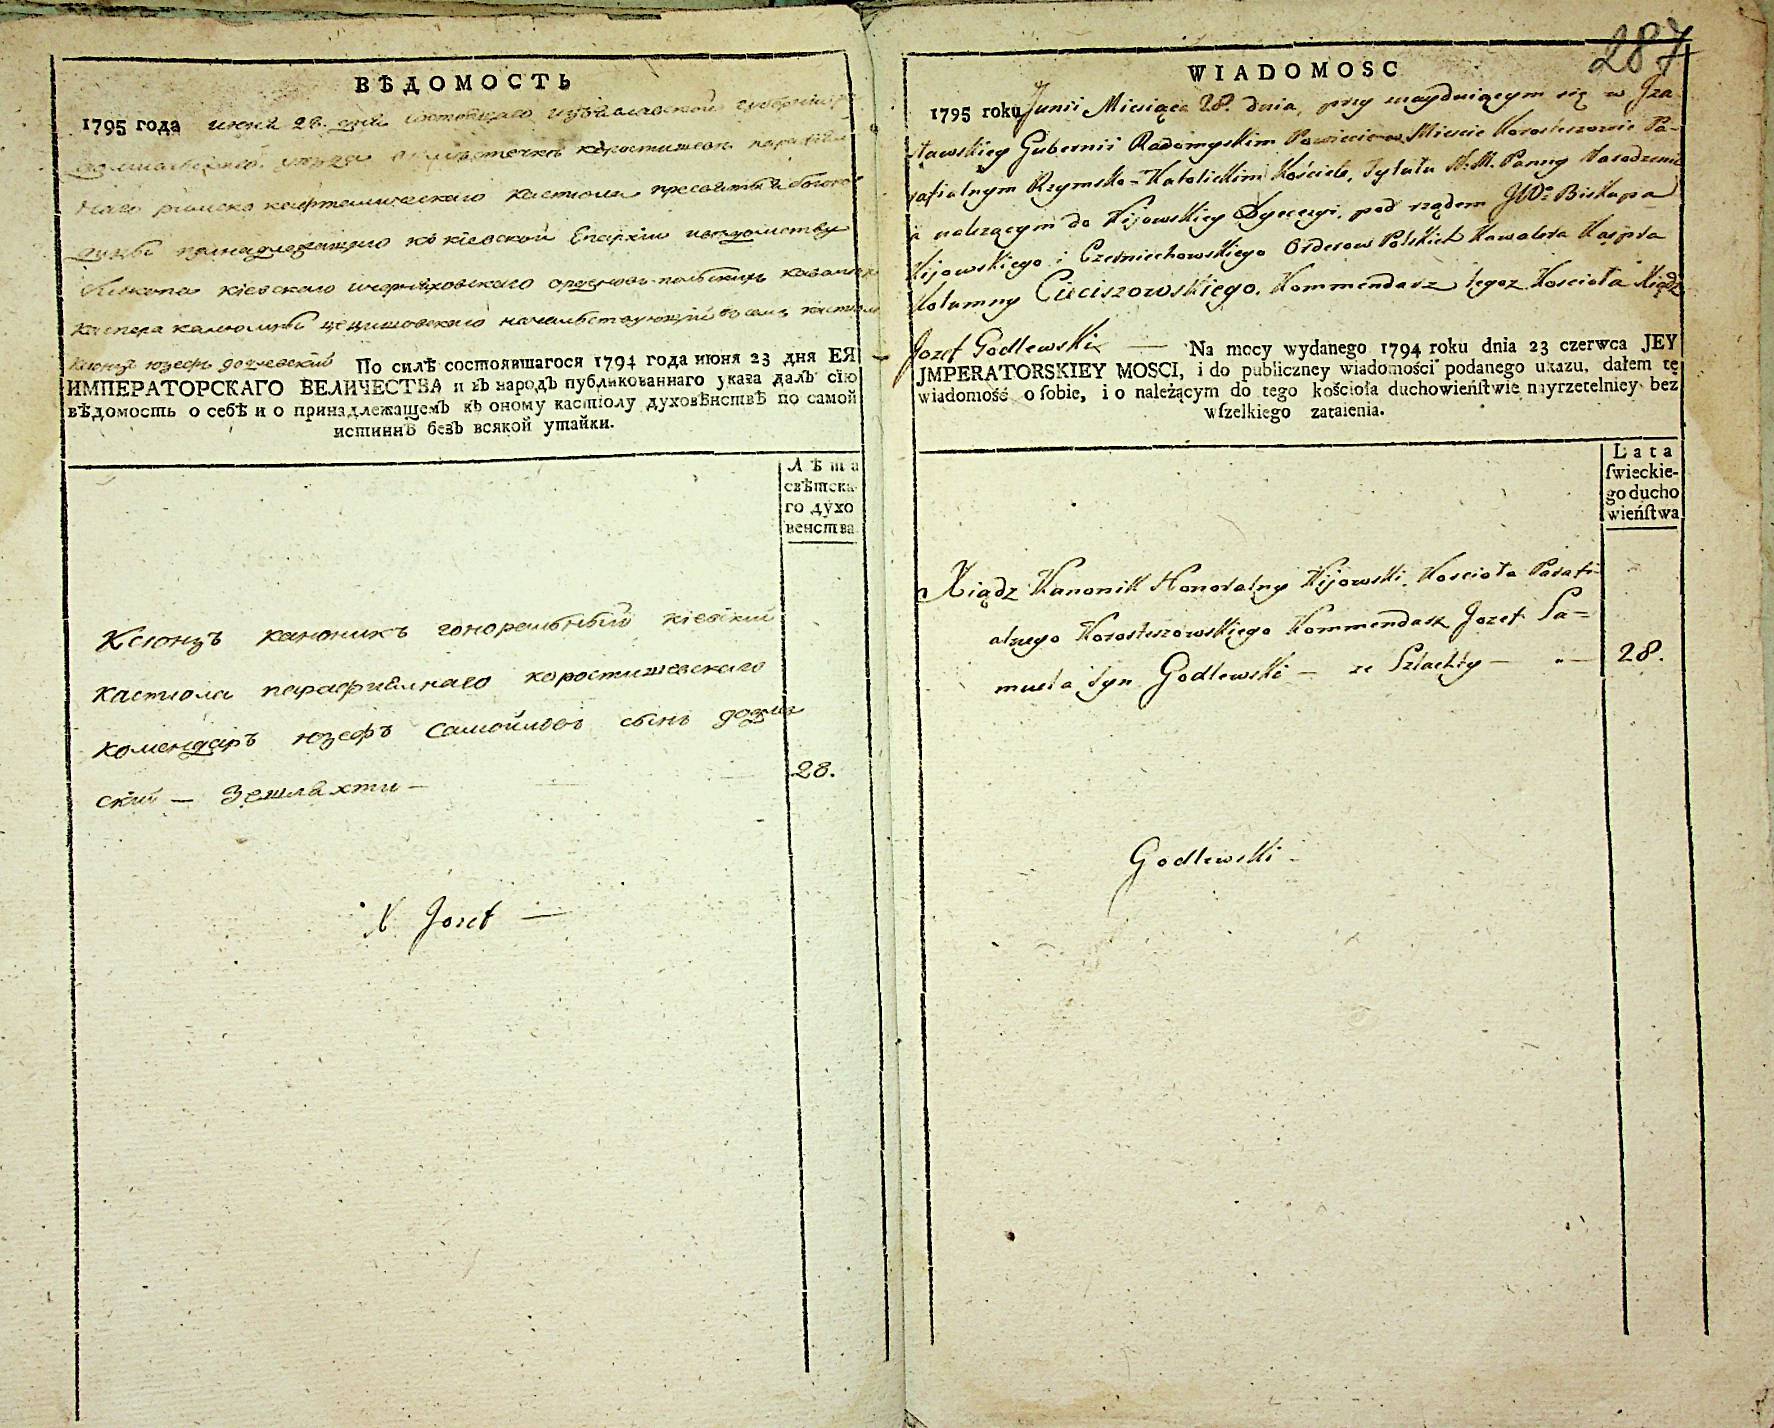 ВѢДОМОСТЬ
1795 года июня 28. дня состоящаго изяславской губернии ра
уезда местечка коростишевѣ парафїял
наго римско католическаго кастиола пресвятыя богоро
принадлежащаго къ кїевской Епархїи
бискупа кїевскаго и чернѣховскаго ордеровъ польскихъ кавалера
каспера калюмны цецишовскаго
ксионзъ юзефъ годлевский По силѣ состоявшагося 1794 года июня 23 дня ЕЯ
ИМПЕРАТОРСКАГО ВЕЛИЧЕСТВА и въ народъ публикованнаго указа далъ сїю
вѣдомость о себѣ и о принадлежащемъ къ оному кастїолу духовѣнствѣ по самой
истиннѣ безъ всякой утайки.
Лѣта
свѣтска
го духо
венства
Ксионзъ каноникъ гоноральный кїевский
кастиола парафиялнаго коростишевскаго
комендаръ юзефъ Самойловъ сынъ годлев
ский — Зешлахти —
28.
X. Jozef —
287
WIADOMOSC
1795 roku Junii Miesiąca 28. dnia, przy znayduiącym się w Jza
sławskiey Gubernii Radomyskim Powiecie w Miescie Korosteszowie Pa-
rafialnym Rzymsko-Katolickim Kościele, Tytułu N. M. Panny Narodzenia
a nalezącym do Kijowskiey Dyecezyi, pod rządem JWo Biskupa
Kijowskiego i Czerniechowskiego Orderow Polskich Kawalera Kaspra
Kolumny Cieciszowskiego. Kommendarz tegoz Koscioła Xiądz
Jozef Godlewski — Na mocy wydanego 1794 roku dnia 23 czerwca JEY
JMPERATORSKIEY MOSCI, i do publiczney wiadomości podanego ukazu, dałem tę
wiadomość o ſobie, i o należącym do tego kościoła duchowieńſtwie nayrzetelniey bez
wſzelkiego zataienia.
Lata
ſwieckie-
go ducho
wieńſtwa
Xiądz Kanonik Honoralny Kijowski. Kosciola Parafi-
alnego Korosteszowskiego Kommendarz Jozef Sa-
muela syn Godlewski — ze Szlachty —
28.
Godlewski